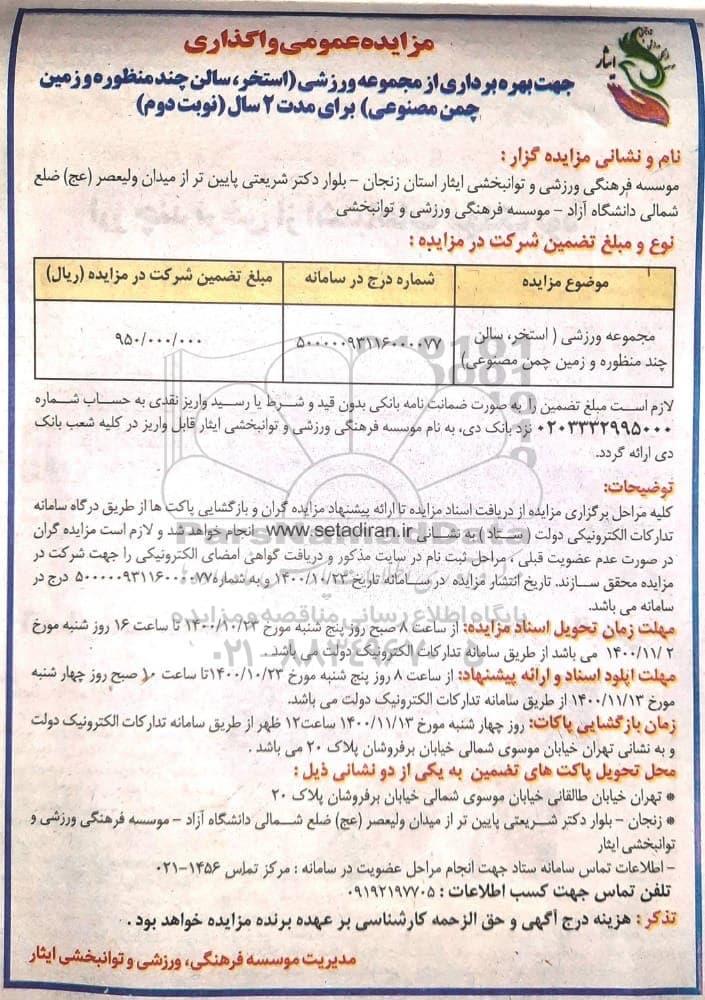 ایثار
مزایده عمومی واگذاری
جهت بهره برداری از مجموعه ورزشی (استخر، سالن چند منظوره و زمین
چمن مصنوعی) برای مدت ۲ سال (نوبت دوم)
نام و نشانی مزایده گزار :
موسسه فرهنگی ورزشی و توانبخشی ایثار استان زنجان - بلوار دکتر شریعتی پایین تر از میدان ولیعصر (عج) ضلع
شمالی دانشگاه آزاد - موسسه فرهنگی ورزشی و توانبخشی
نوع و مبلغ تضمین شرکت در مزایده :
موضوع مزایده شماره درج در سامانه مبلغ تضمین شرکت در مزایده (ریال)
مجموعه ورزشی ( استخر، سالن
چند منظوره و زمین چمن مصنوعی) ۵۰۰۰۰۰۹۳۱۱۶۰۰۰۰۷۷ ۹۵۰/۰۰۰/۰۰۰
لازم است مبلغ تضمین را به صورت ضمانت نامه بانکی بدون قید و شرط یا رسید واریز نقدی به حساب شماره
۰۲۰۳۳۳۲۹۹۵۰۰۰ نزد بانک دی، به نام موسسه فرهنگی ورزشی و توانبخشی ایثار قابل واریز در کلیه شعب بانک
دی ارائه گردد.
توضیحات:
کلیه مراحل برگزاری مزایده از دریافت اسناد مزایده تا ارائه پیشنهاد مزایده گران و بازگشایی پاکت ها از طریق درگاه سامانه
تدارکات الکترونیکی دولت ( ستاد ) به نشانی www.setadiran.ir انجام خواهد شد و لازم است مزایده گران
در صورت عدم عضویت قبلی ، مراحل ثبت نام در سایت مذکور و دریافت گواهی امضای الکترونیکی را جهت شرکت در
مزایده محقق سازند. تاریخ انتشار مزایده در سامانه تاریخ ۱۴۰۰/۱۰/۲۳ و به شماره ۵۰۰۰۰۰۹۳۱۱۶۰۰۰۰۷۷ درج در
سامانه می باشد.
مهلت زمان تحویل اسناد مزایده: از ساعت ۸ صبح روز پنج شنبه مورخ ۱۴۰۰/۱۰/۲۳ تا ساعت ۱۶ روز شنبه مورخ
۱۴۰۰/۱۱/۲ می باشد از طریق سامانه تدارکات الکترونیک دولت می باشد .
مهلت اپلود اسناد و ارائه پیشنهاد: از ساعت ۸ روز پنج شنبه مورخ ۱۴۰۰/۱۰/۲۳ تا ساعت ۱۰ صبح روز چهار شنبه
مورخ ۱۴۰۰/۱۱/۱۳ از طریق سامانه تدارکات الکترونیک دولت می باشد.
زمان بازگشایی پاکات: روز چهار شنبه مورخ ۱۴۰۰/۱۱/۱۳ ساعت ۱۲ ظهر از طریق سامانه تدارکات الکترونیک دولت
و به نشانی تهران خیابان موسوی شمالی خیابان برفروشان پلاک ۲۰ می باشد .
محل تحویل پاکت های تضمین به یکی از دو نشانی ذیل :
* تهران خیابان طالقانی خیابان موسوی شمالی خیابان برفروشان پلاک ۲۰
* زنجان - بلوار دکتر شریعتی پایین تر از میدان ولیعصر (عج) ضلع شمالی دانشگاه آزاد - موسسه فرهنگی ورزشی و
توانبخشی ایثار
- اطلاعات تماس سامانه ستاد جهت انجام مراحل عضویت در سامانه : مرکز تماس ۱۴۵۶-۰۲۱
تلفن تماس جهت کسب اطلاعات : ۰۹۱۹۲۱۹۷۷۰۵
تذکر : هزینه درج آگهی و حق الزحمه کارشناسی بر عهده برنده مزایده خواهد بود .
مدیریت موسسه فرهنگی، ورزشی و توانبخشی ایثار
پایگاه اطلاع رسانی مناقصه و مزایده